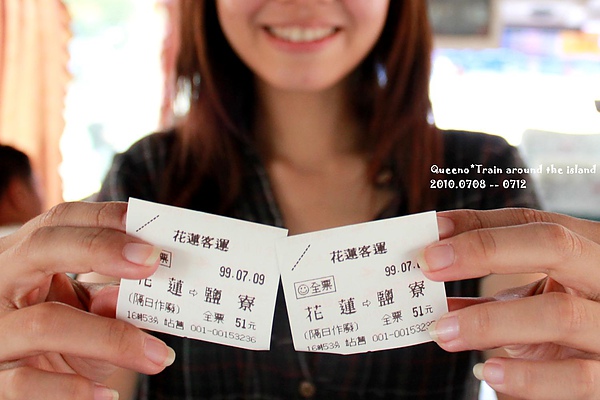 Queeno*Train around the island
2010.0708 -- 0712
花蓮客運
99.07.09
全票
花蓮⇨鹽寮
(隔日作廢)
全票 51元
16時53分 站售 001-00153236
花蓮客運
99.07.
☺全票
花蓮⇨鹽寮
(隔日作廢)
全票 51元
16時53分 站售 001-00153